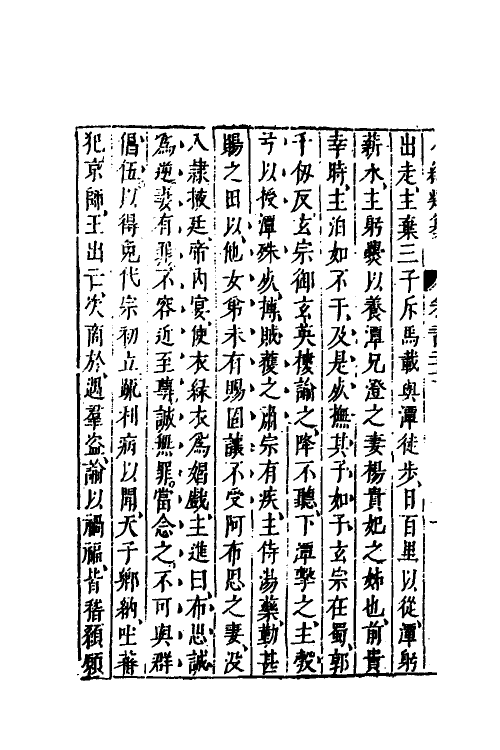 出走主棄三子斥馬載與潭徒步日百里以從潭躬
薪水主躬爨以養潭兄澄之妻楊貴妃之姊也前貴
幸時主泊如不干及是妖撫其子如子玄宗在蜀郭
千仭反玄宗御玄英樓諭之降不聽下潭擊之主彀
弓以授潭殊妖摶賊獲之肅宗有疾主侍湯藥勤甚
賜之田以他女弟未有賜固讓不受阿布思之妻沒
入隷掖廷帝內宴使衣綠衣爲娼戲主進曰布思誠
爲逆妻有罪不容近至尊誠無罪當念之不可與群
倡伍以得免代宗初立屢利病以聞天子鄉納吐蕃
犯京師王出亡次商於遇羣盜諭以禍福皆稽顙願